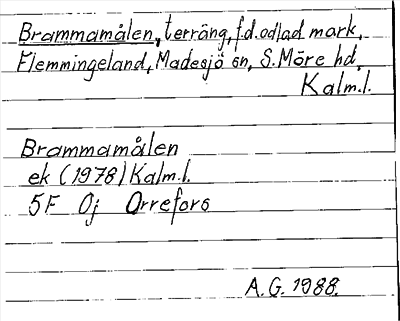 Brammamålen, terräng, f.d. odlad mark,
Flemmingeland, Madesjö sn, S. Möre hd,
Kalm.l.
Brammamålen
ek (1978) Kalm.l.
5F Oj Orrefors
A.G. 1988.